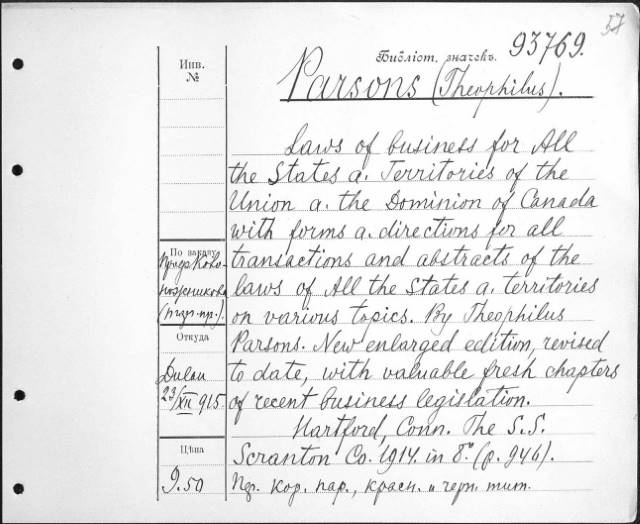 57
Библіот. значекъ. 93769.
Parsons (Theophilus).
Инв.
№
Laws of business for All
the States a. Territories of the
Union a. the Dominion of Canada
with forms a. directions for all
transactions and abstracts of the
laws of All the States a. territories
on various topics. By Theophilus
Parsons. New enlarged edition, revised
to date, with valuable fresh chapters
of recent business legislation.
Hartford, Conn. The S.S.
Scranton Co. 1914. in 8º. (p. 946).
кор. пар., красн. и черн. тит.
По заказу
Откуда
Dulau
23/XII 915.
Цѣна
9.50